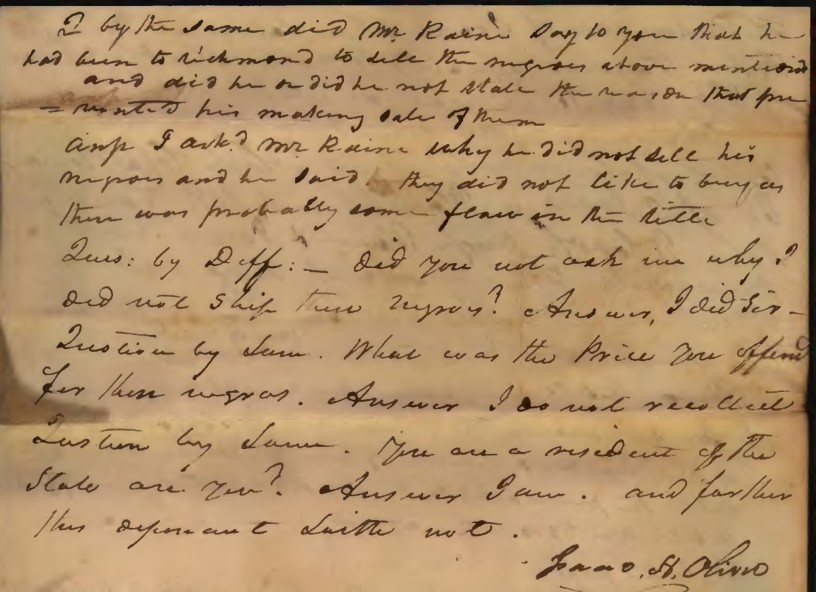 Q by the same did Mr Raine Say to you that he
had been to richmond to sell the negroes above mentioned
and did he or did he not state the reason that pre
= vented his making sale of them
Ansr I ask.d Mr Raine why he did not sell his
negroes and he said they did not like to buy as
there was probably some flaw in the title
Ques: by Deff: – did you not ask me why I
did not Ship these negroes? Answer, I did Sir –
Question by Same. What was the Price you offered
for these negros. Answer I do not recollect
Question by Same. You are a resident of the
State are you? Answer I am. and further
this deponant Saith not.
Isaac. H. Oliver